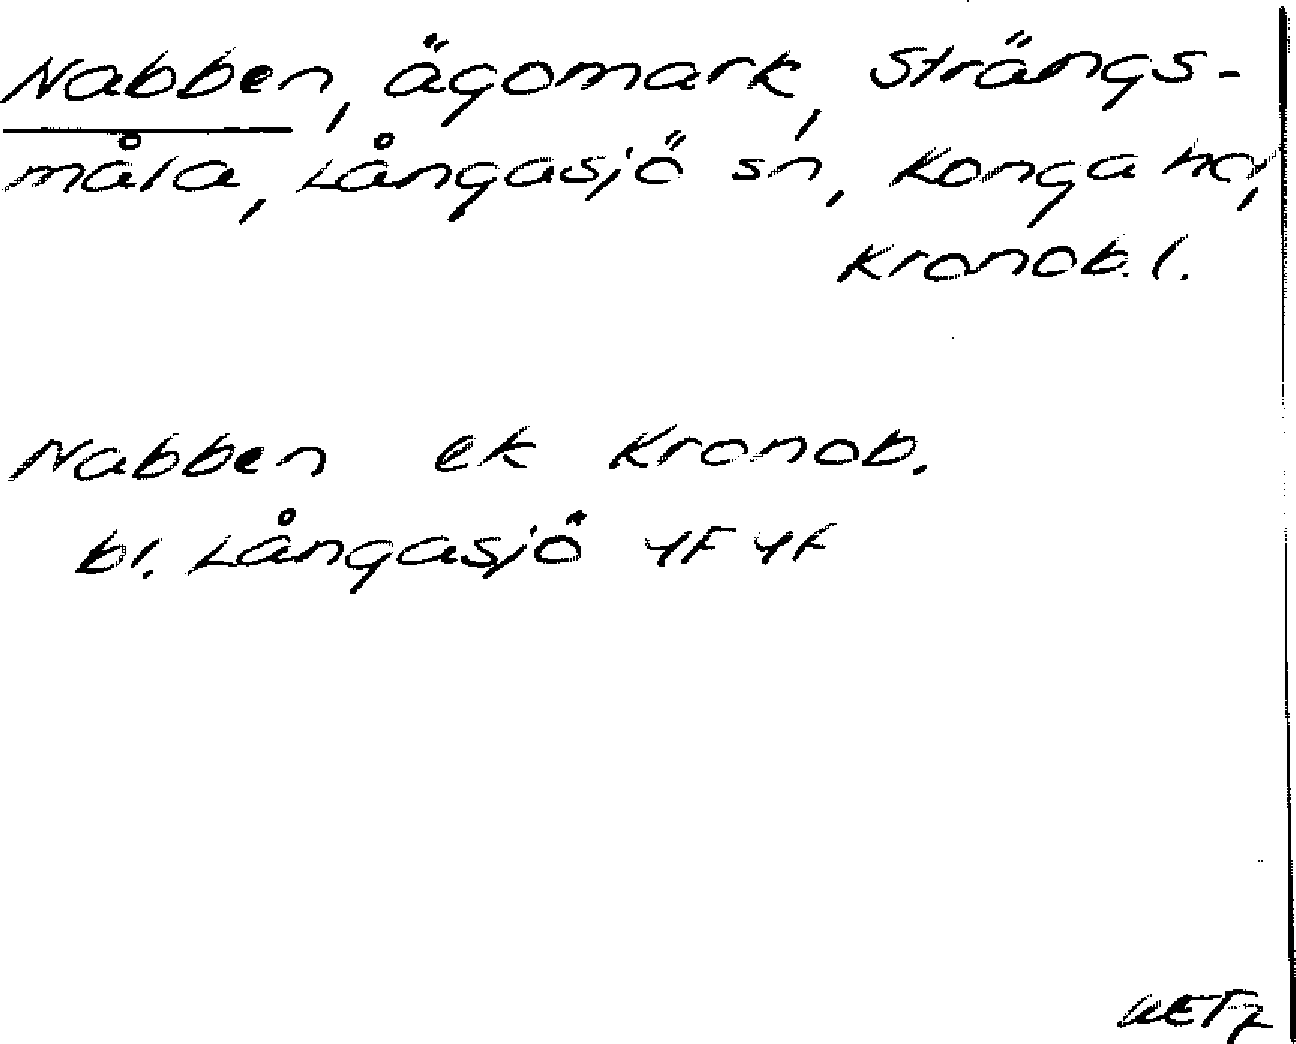 Nabben, ägomark, Strängs-
måla, Långasjö sn, Konga hd,
Kronob. l.
Nabben ek Kronob.
bl. Långasjö 4F 4f